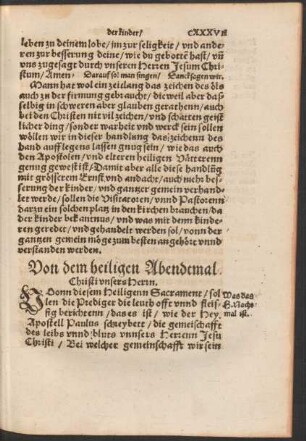 der kinder/ CXXXVII
leben zu deinem lobe/ im zur seligkeit/ vnd ande-
ren zur besserung deine/ wie du gebottē hast/ vn̄
vns zugesagt durch vnseren Herren Jesum Chri-
stum/ Amen. Darauf sol man singen/ Danck sagen wir.
Mann hat wol ein zeitlang das zeichen des öls
auch zu der firmung gebraucht/ die weil aber das-
selbig in schweren aber glauben gerathenn/ auch
bei den Christen nit vil zeichen/ vnd schatten geist
licher ding/ sonder warheit vnd werck sein sollen
wöllen wir in dieser handlung das zeichenn des
hand aufflegens lassen gnug sein/ wie das auch
den Apostolen/ vnd elteren heiligen Vätterenn
genug gewest ist/ Damit aber alle diese handlūg
mit grösserem Ernst vnd andacht/ auch mehr bes-
serung der kinder/ vnd gantzer gemein verhand-
ler werde/ sollen die Visitatoren/ vnnd Pastorenn
darzu ein solchen platz in den kirchen brauchen/ da
der kinder bekantnus/ vnd was mit denn kinde-
ren geredet/ vnd gehandelt werden sol/ vonn der
gantzen gemein möge zum besten angehöre vnnd
verstanden werden.
Von dem heiligen Abendtmal
Christi vnsers Herrn.
VOnn diesem Heiligenn Sacrament/ sol
len die Prediger die leuth offt vnnd fleis-
sig berichtenn/ das es ist/ wie der Hey.
Apostell Paulus schreybett/ die gemeischafft
des leibs vnnd bluts vnnsers Herrenn Jesu
Christi/ Bei welcher gemeinschafft wir sein
Was das
H. Nacht-
mal ist.